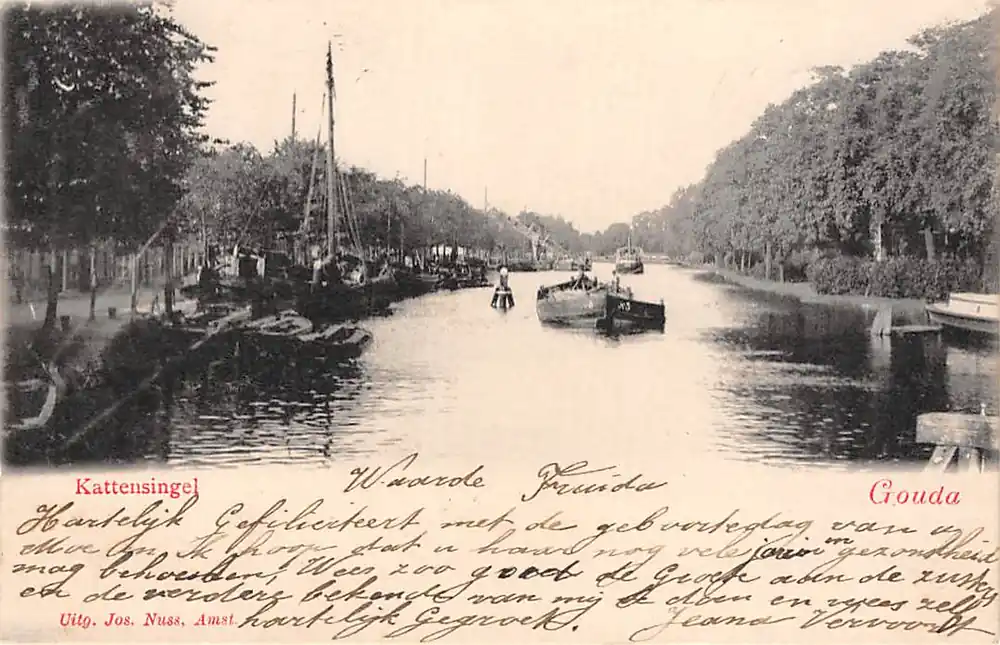 Waarde Fruida
Kattensingel
Gouda
Hartelijk Gefiliciteert met de geboortedag van u
Moe en Ik hoop dat u haar nog vele jaren in gezondheid
mag behouden, Wees zoo goed de Groet aan de zusters
en de verdere bekende van mij te doen en wees zelf
Uitg. Jos. Nuss, Amst.
hartelijk Gegroet.
Jeana Vervoordt